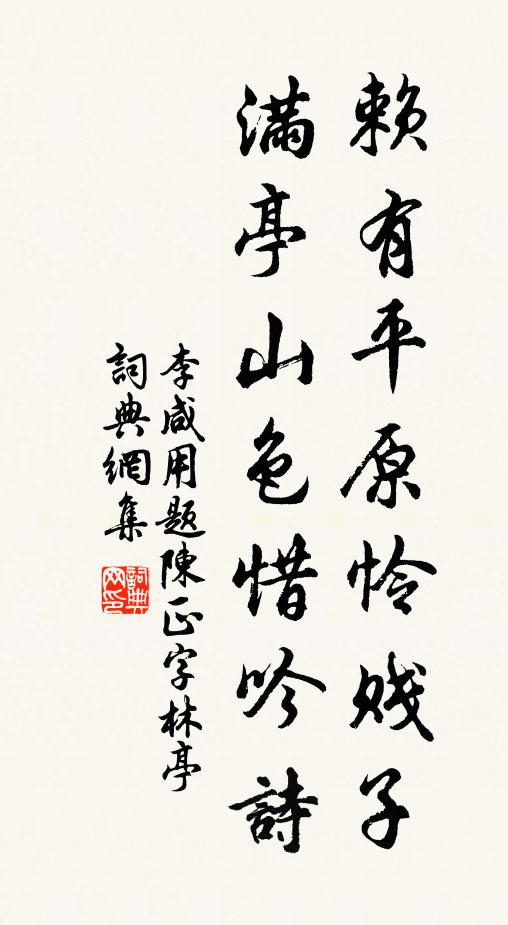 賴有平原怜賤子
滿亭山色惜吟詩
李咸用題陳正字林亭
詞典網集
詞典網印